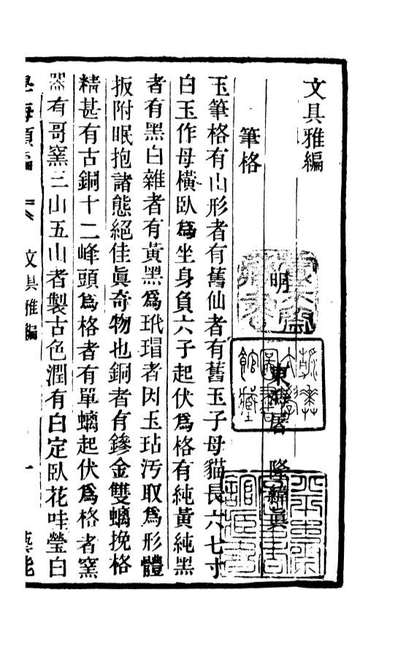 文具雅編
明 東海屠 隆緯真
筆格
玉筆格有山形者有舊仙者有舊玉子母貓長六七寸
白玉作母橫臥爲坐身負六子起伏爲格有純黃純黑
者有黑白雜者有黃黑爲玳瑁者因玉玷污取爲形體
扳附眠抱諸態絕佳眞奇物也銅者有鏒金雙螭挽格
精甚有古銅十二峰頭爲格者有單螭起伏爲格者窯
器有哥窯三山五山者製古色潤有白定臥花哇瑩白
學海類編 文具雅編 一